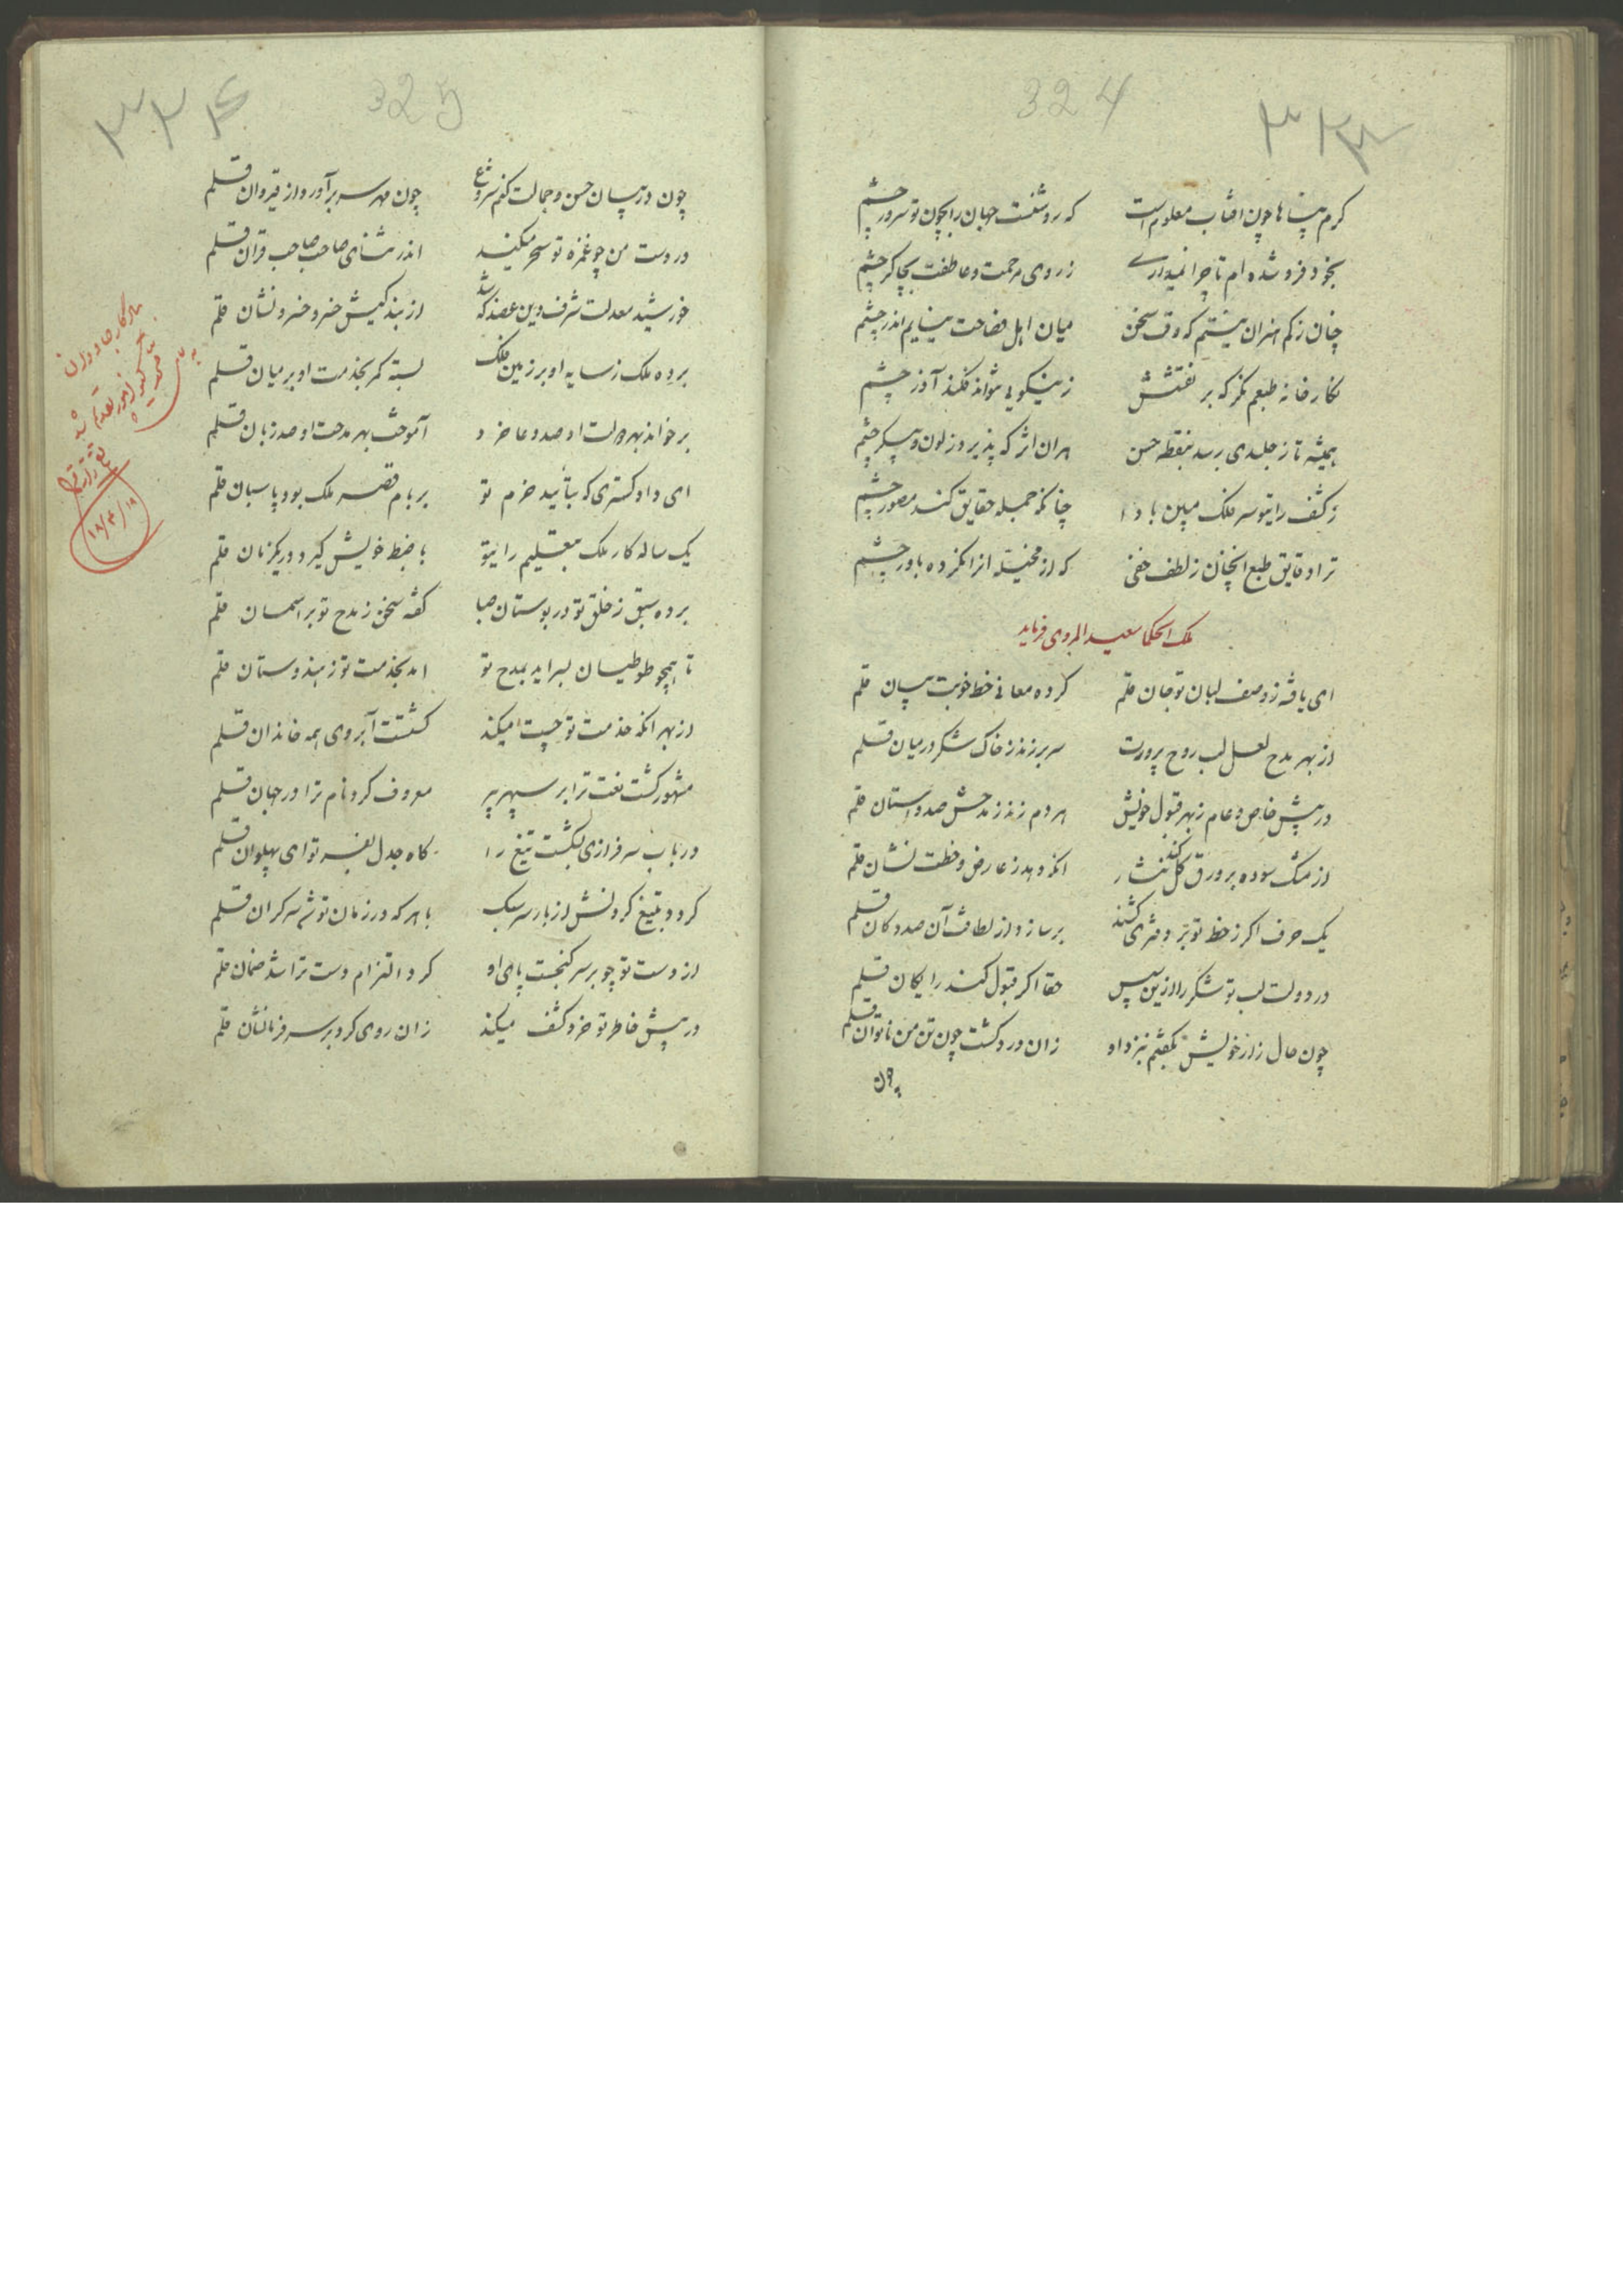 324
۳۲۴
کرم پناها چون افتاب معلومست که روشنست جهان را بچون تو سرور چشم
بخود فرو شده ام تا چرا نمیداری ز روی مرحمت و عاطفت بچاکر چشم
چنان ز کم هنران نیستم که وقت سخن میان اهل فصاحت نیایم اندر چشم
نگارخانه طبعم نگر که بر نقشش ز نیکویی نتواند فکند آذر چشم
همیشه تا ز جلیدی رسد بنقطه حس هران اثر که پذیرد ز لون و پیکر چشم
ز کشف رای تو سر فلک مبین بادا چنانکه جمله حقایق کند مصور چشم
ترا دقایق طبع انچنان ز لطف خفی که از مخیله انرا نکرده باور چشم
ملک الحکما سعید الهروی فرماید
ای یافته ز وصف لبان تو جان قلم کرده معانی خط خوبت بیان قلم
از بهر مدح لعل لب روح پرورت سر بر زند ز خاک شکر در میان قلم
در پیش خاص و عام ز بهر قبول خویش هر دم زند ز مدحش صد داستان قلم
از مشک سوده بر ورق گل کند نثار انکو دهد ز عارض و خطت نشان قلم
یک حرف اکر ز خط تو بر دفتری کشند بر سازد از لطافت آن صد دکان قلم
در دولت لب تو شکر را ازین سپس حقا اکر قبول کند رایکان قلم
چون حال زار خویش بکفتم بنزد او زان درد کشت چون تن من ناتوان قلم
325
۳۲۵
چون در بیان حسن و جمالت کنم شروع چون مهر سر برآورد از قیروان قلم
در دست من چو غمزه تو سحر میکند اندر ثنای صاحب صاحب قران قلم
خورشید معدلت شرف دین عضد که شد از بندکیش خسرو خسرو نشان قلم
برده ملک ز سایه او بر زمین فلک بسته کمر بخدمت او بر میان قلم
برخواند بهر دولت او صد دعا خرد آموخت بهر مدحت او صد زبان قلم
ای دادکستری که بتأیید حزم تو بر بام قصر ملک بود پاسبان قلم
یک ساله کار ملک بتعلیم رای تو با ضبط خویش کیرد در یکزمان قلم
برده سبق ز خلق تو در بوستان صبا کفته سخن ز مدح تو بر اسمان قلم
تا همچو طوطیان بسراید بمدح تو امد بخدمت تو ز هندوستان قلم
از بهر انکه خدمت تو چست میکند کشتست آبروی همه خاندان قلم
مشهور کشت نعت ترا بر سپهر پیر معروف کرد نام ترا در جهان قلم
در باب سرفرازی بکشت تیغ را کاه جدل بفر تو ای پهلوان قلم
کردد بتیغ کردنش از بار سر سبک با هر که در زمان تو شد سرکران قلم
از دست تو چو بر سر کنجست پای او کرد التزام دست ترا شد ضمان قلم
در پیش خاطر تو خرد کشف میکند زان روی کرد بر سر فرمانشان قلم